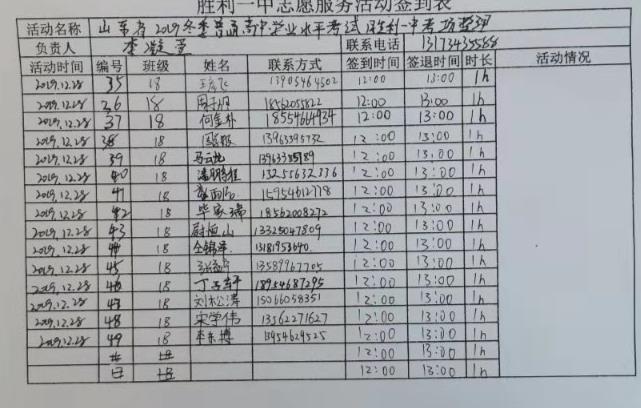 胜利一中志愿服务活动签到表
活动名称 山东省2019冬季普通高中学业水平考试胜利一中考场整理
负责人 李 联系电话 13173435588
活动时间 编号 班级 姓名 联系方式 签到时间 签退时间 时长 活动情况
2019.12.28 35 18 13905464502 12:00 13:00 1h
2019.12.28 36 18 18562055822 12:00 13:00 1h
2019.12.28 37 18 何金朴 18554664934 12:00 13:00 1h
2019.12.28 38 18 13963395732 12:00 13:00 1h
2019.12.28 39 18 12:00 13:00 1h
2019.12.28 40 18 13255632776 12:00 13:00 1h
2019.12.28 41 18 15954612778 12:00 13:00 1h
2019.12.28 42 18 毕家瑞 18562008272 12:00 13:00 1h
2019.12.28 43 18 尉恒山 13325047809 12:00 13:00 1h
2019.12.28 44 18 13181953640 12:00 13:00 1h
2019.12.28 45 18 13589967705 12:00 13:00 1h
2019.12.28 46 18 18954687295 12:00 13:00 1h
2019.12.28 47 18 刘松涛 15066058351 12:00 13:00 1h
2019.12.28 48 18 宋学伟 13562271627 12:00 13:00 1h
2019.12.28 49 18 李东博 13954624525 12:00 13:00 1h
12:00 13:00 1h
12:00 13:00 1h